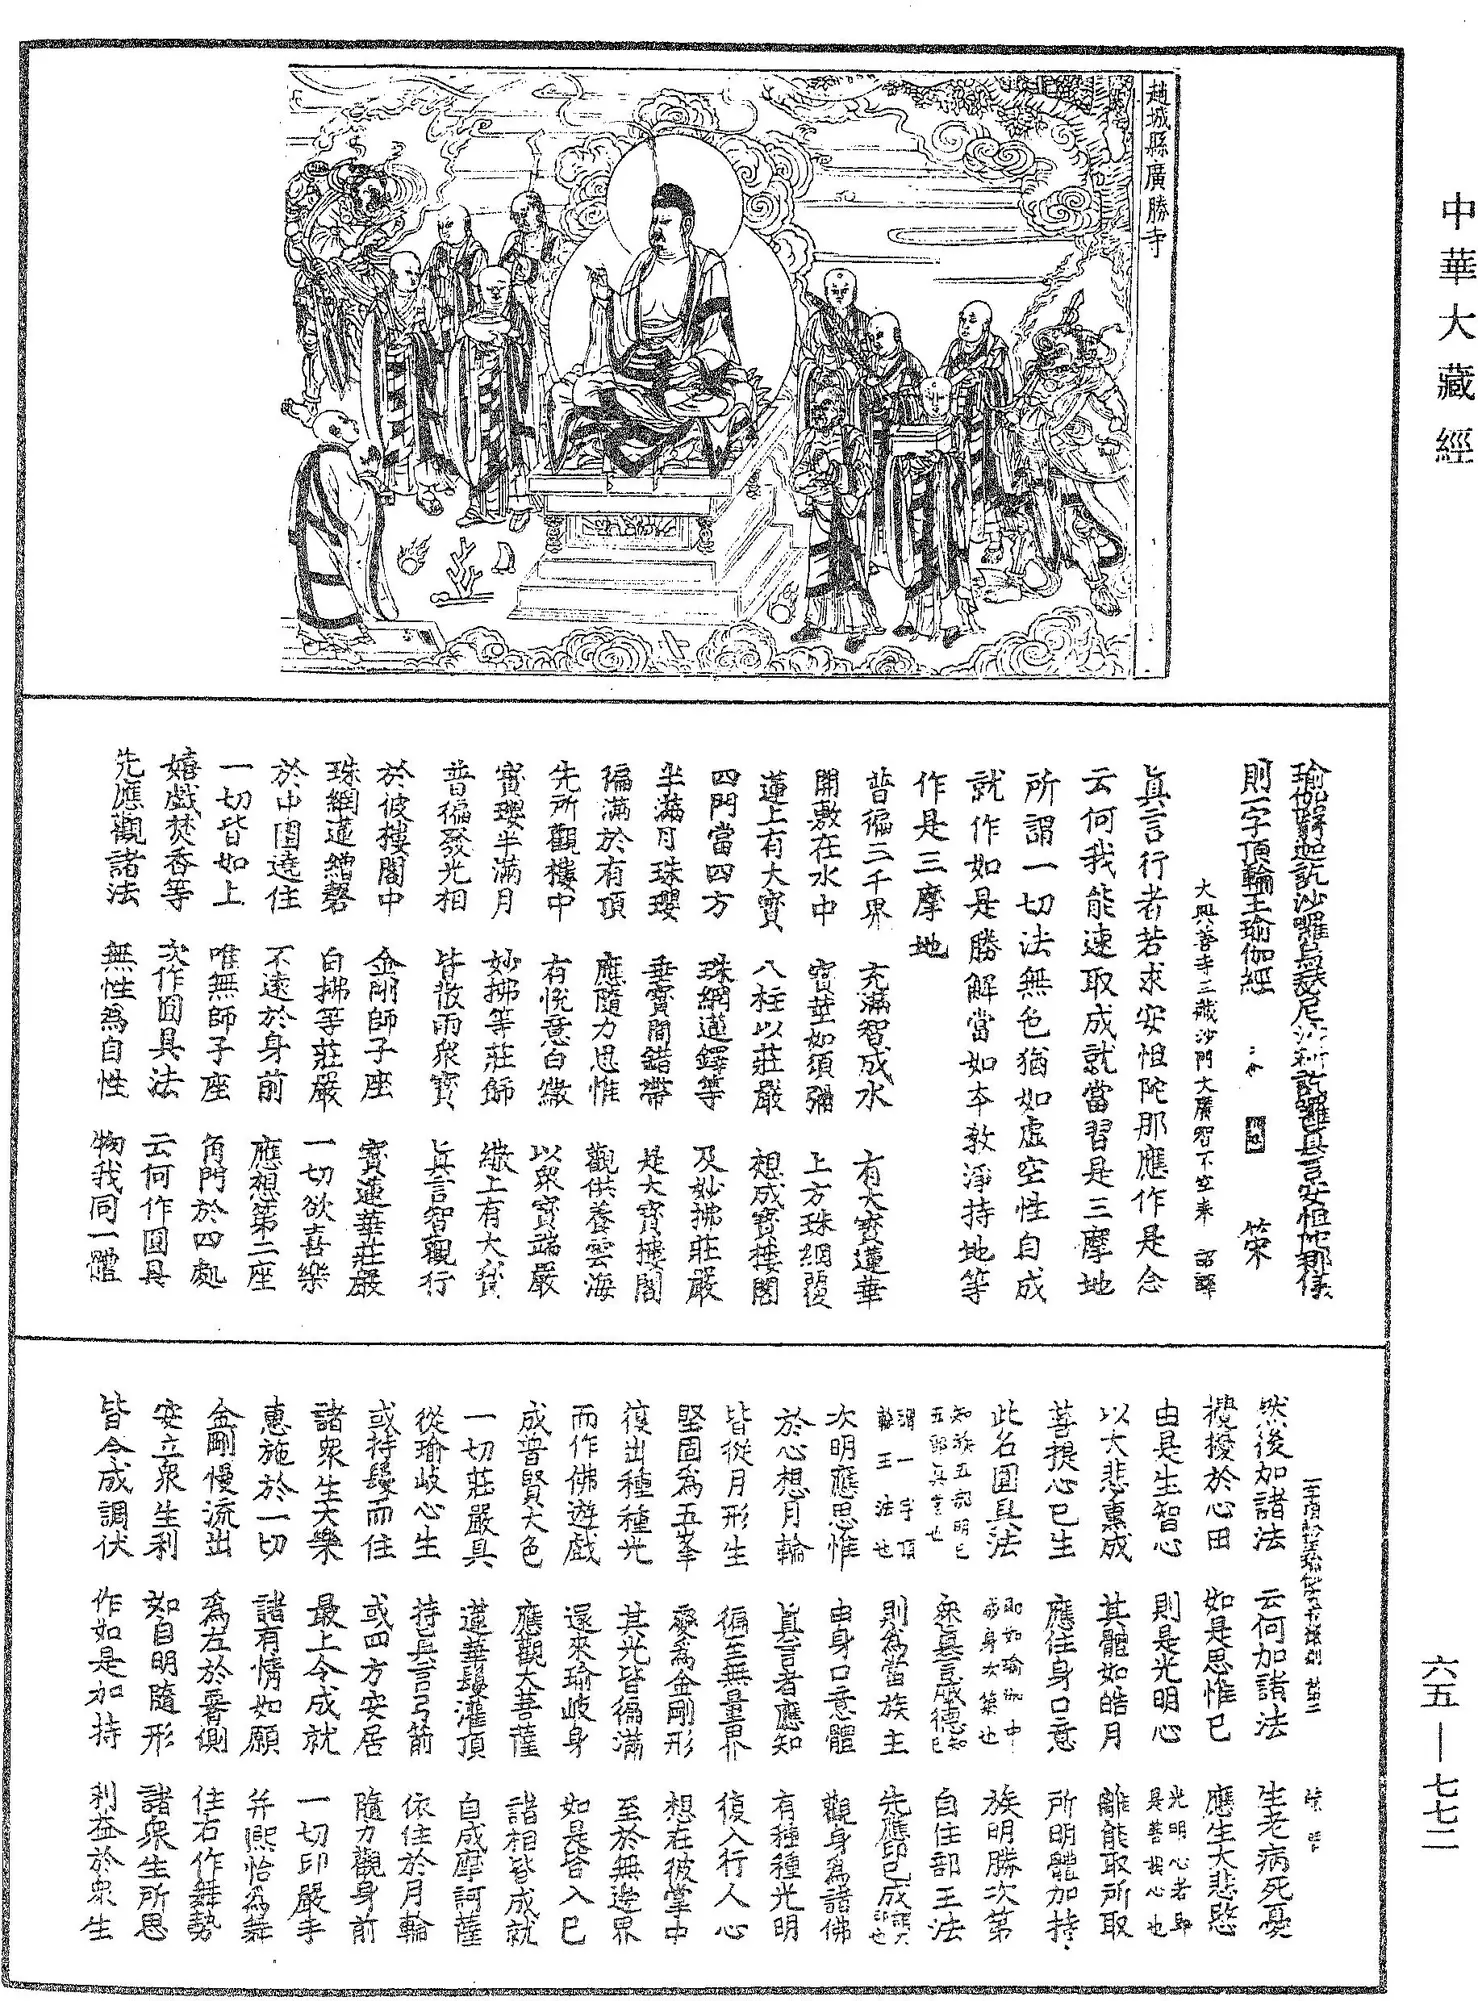 中華大藏經
趙城縣廣勝寺
則一字頂輪王瑜伽經
大興善寺三藏沙門大廣智不空奉 詔譯
真言行者若求安怛陀那應作是念
云何我能速取成就當習是三摩地
所謂一切法無色猶如虛空性自成
就作如是勝解當如本教淨持地等
作是三摩地
普徧三千界 充滿智成水 有大寶蓮華
開敷在水中 寶華如須彌 上方珠網覆
蓮上有大寶 八柱以莊嚴 想成寶樓閣
四門當四方 珠網蓮鐸等 及妙拂莊嚴
半滿月珠瓔 垂寶間錯帶 是大寶樓閣
徧滿於有頂 應隨力思惟 觀供養雲海
先所觀樓中 有悅意白繖 以眾寶端嚴
寶瓔半滿月 妙拂等莊飾 繖上有大寶
普徧發光相 皆散雨衆寶 真言智觀行
於彼樓閣中 金剛師子座 寶蓮華莊嚴
珠網蓮繒磬 白拂等莊嚴 一切欲喜樂
於中圍遶住 不遠於身前 應想第二座
一切皆如上 唯無師子座 角門於四處
嬉戲焚香等 次作圓具法 云何作圓具
先應觀諸法 無性為自性 物我同一體
然後加諸法 云何加諸法 生老病死憂
擾擾於心田 如是思惟已 應生大悲愍
由是生智心 則是光明心 光明心者即是菩提心也
以大悲熏成 其體如皓月 離能取所取
菩提心已生 應住身口意 所明體加持
此名圓具法 即如瑜伽中 族明勝次第
眾慕三威德 自住部王法
謂一字頂輪王法也 則為當族主 先應印已成
次明應思惟 由身口意體 觀身為諸佛
於心想月輪 真言者應知 有種種光明
皆從月形生 徧至無量界 復入行人心
堅固為五峯 變為金剛形 想在彼掌中
復出種種光 其光皆徧滿 至於無邊界
而作佛遊戲 還來瑜岐身 如是皆入已
成普賢大色 應觀大菩薩 諸相皆成就
一切莊嚴具 蓮華鬘灌頂 自成摩訶薩
從瑜岐心生 持真言弓箭 依住於月輪
或持鬘而住 或四方安居 隨力觀身前
諸衆生大樂 最上令成就 一切印嚴手
惠施於一切 諸有情如願 并熙怡為舞
金剛慢流出 為左於䯗側 住右作舞勢
安立衆生利 如自明隨形 諸衆生所思
皆令成調伏 作如是加持 利益於衆生
六五—七七二